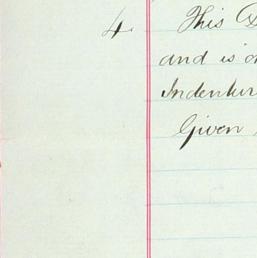 4. This
and is
Indentur
Given